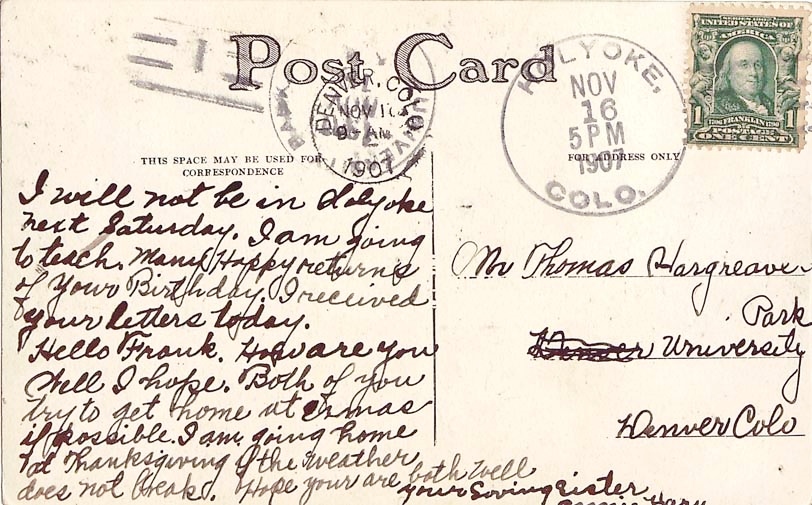 Post Card
DENVER, COLO.
NOV 16
9 - AM
1907
HOLYOKE,
NOV
16
5 PM
1907
COLO.
SERIES 1902
UNITED STATES OF
AMERICA
1 1
1706 FRANKLIN 1790
POSTAGE
ONE CENT
THIS SPACE MAY BE USED FOR
CORRESPONDENCE
FOR ADDRESS ONLY
I will not be in Holyoke
next Saturday. I am going
to teach. Many Happy returns
of Your Birthday. I received
your letters today.
Hello Frank. How are you
Well I hope. Both of you
try to get home at Xmas
if possible. I am going home
at Thanksgiving if the weather
does not break. Hope your are both well
your loving sister
Mr Thomas Hargreaves
Park
University
Denver Colo